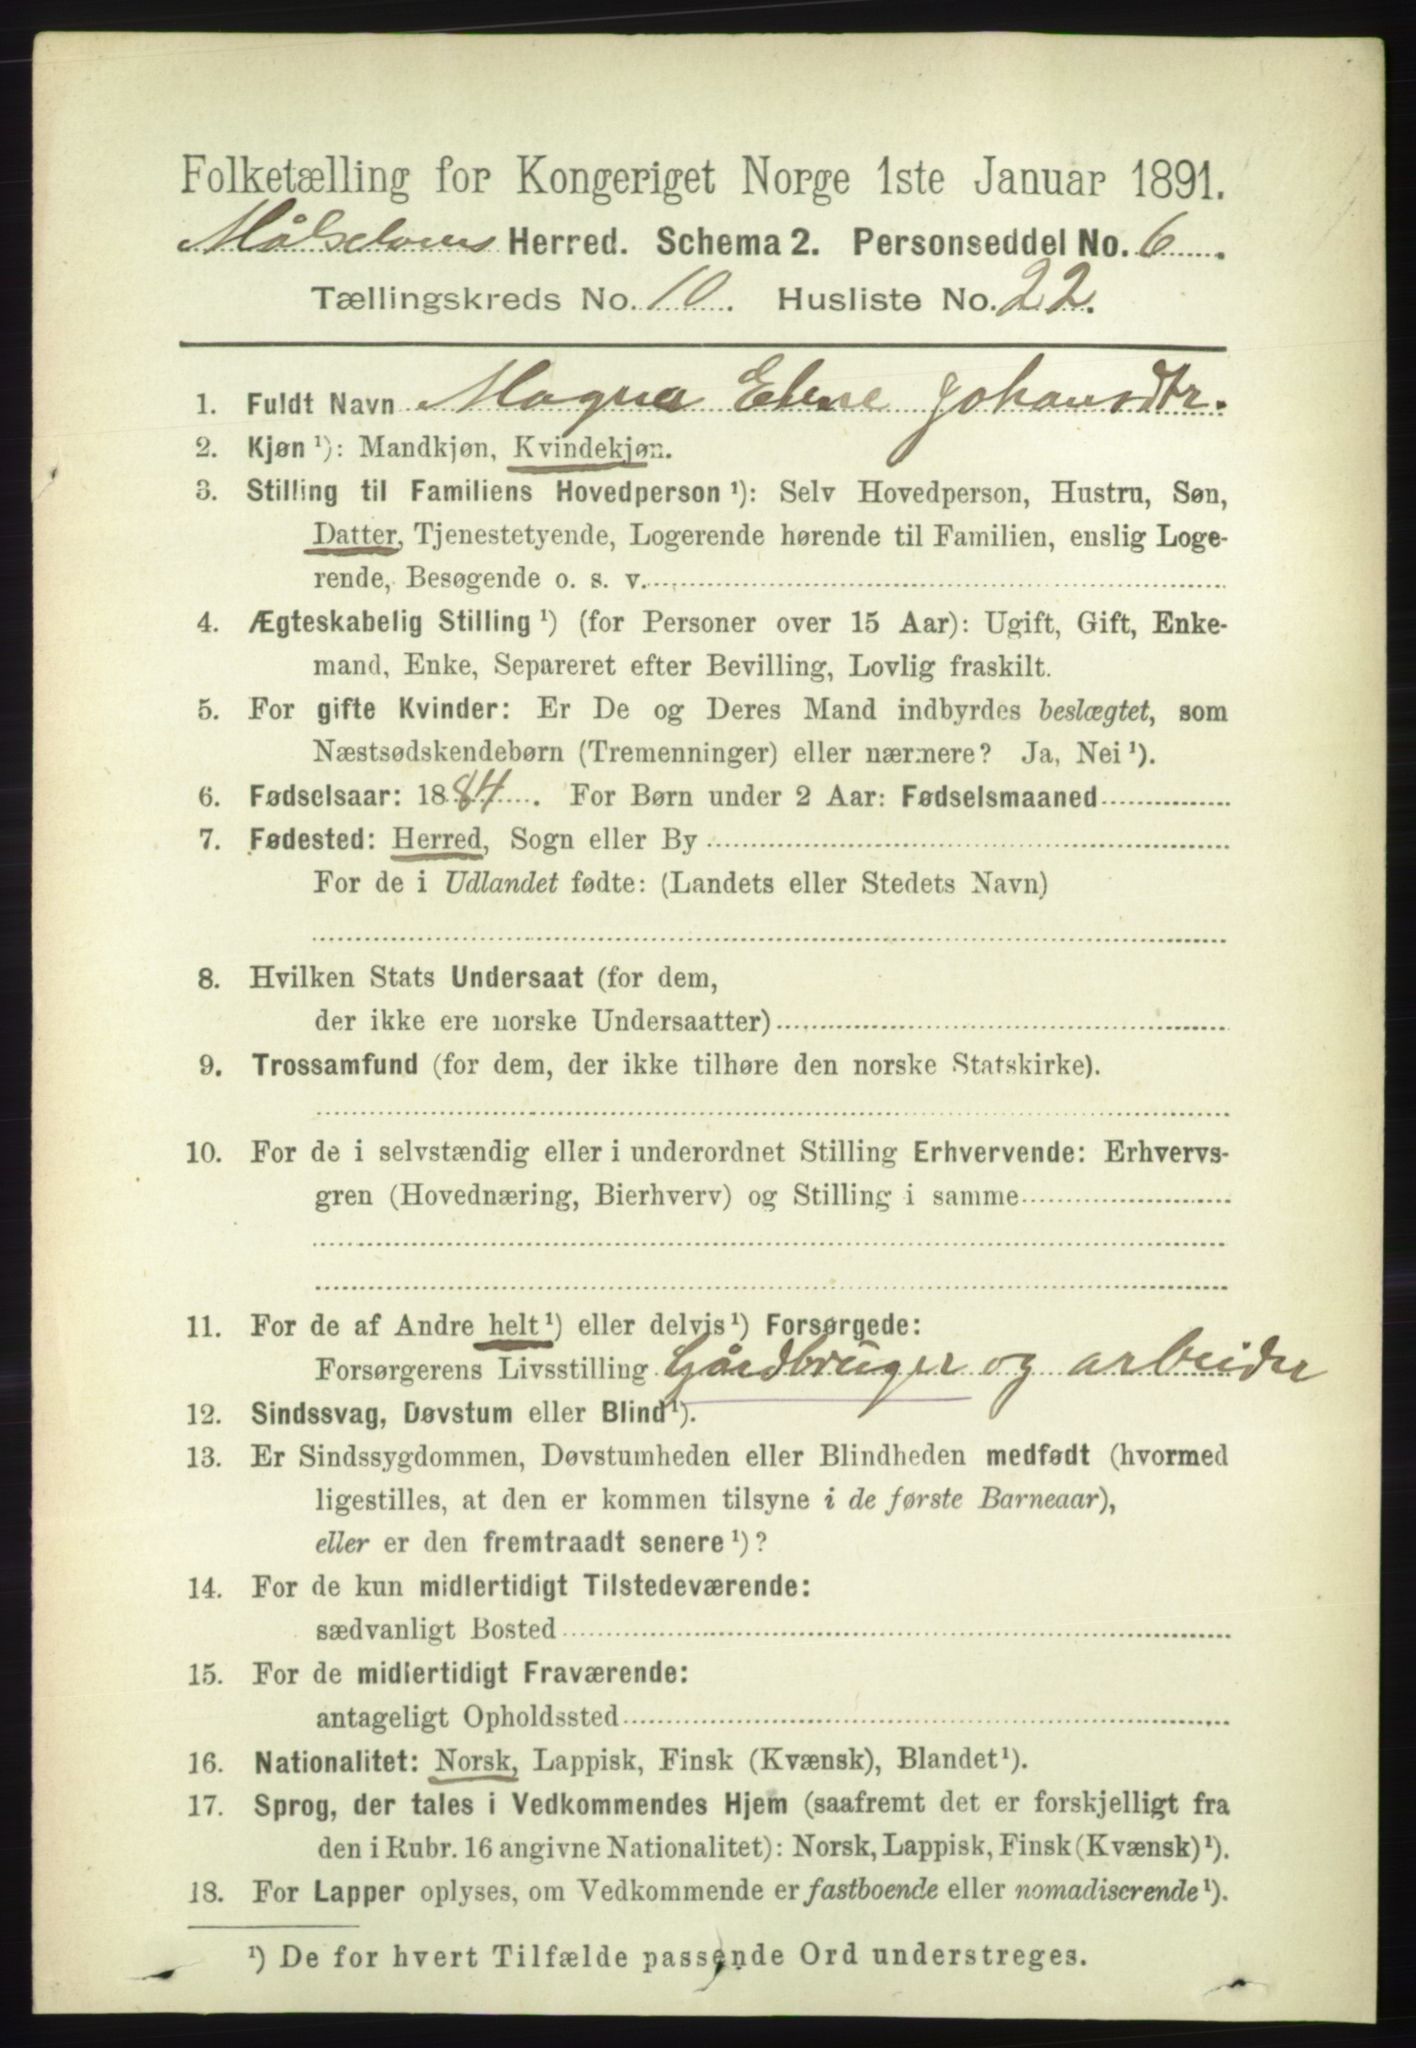 Folketælling for Kongeriget Norge 1ste Januar 1891.
Målselvens Herred. Schema 2. Personseddel No. 6.
Tællingskreds No. 10. Husliste No. 22.
1. Fuldt Navn Magna Eline Johansdtr.
2. Kjøn ¹): Mandkjøn, Kvindekjøn.
3. Stilling til Familiens Hovedperson ¹): Selv Hovedperson, Hustru, Søn,
Datter, Tjenestetyende, Logerende hørende til Familien, enslig Loge-
rende, Besøgende o. s. v.
4. Ægteskabelig Stilling ¹) (for Personer over 15 Aar): Ugift, Gift, Enke-
mand, Enke, Separeret efter Bevilling, Lovlig fraskilt.
5. For gifte Kvinder: Er De og Deres Mand indbyrdes beslægtet, som
Næstsødskendebørn (Tremenninger) eller nærmere? Ja, Nei ¹).
6. Fødselsaar: 1884. For Børn under 2 Aar: Fødselsmaaned
7. Fødested: Herred, Sogn eller By
For de i Udlandet fødte: (Landets eller Stedets Navn)
8. Hvilken Stats Undersaat (for dem,
der ikke ere norske Undersaatter)
9. Trossamfund (for dem, der ikke tilhøre den norske Statskirke).
10. For de i selvstændig eller i underordnet Stilling Erhvervende: Erhvervs-
gren (Hovednæring, Bierhverv) og Stilling i samme
11. For de af Andre helt ¹) eller delvis ¹) Forsørgede:
Forsørgerens Livsstilling Gårdbruger og arbeider
12. Sindssvag, Døvstum eller Blind ¹).
13. Er Sindssygdommen, Døvstumheden eller Blindheden medfødt (hvormed
ligestilles, at den er kommen tilsyne i de første Barneaar),
eller er den fremtraadt senere ¹)?
14. For de kun midlertidigt Tilstedeværende:
sædvanligt Bosted
15. For de midlertidigt Fraværende:
antageligt Opholdssted
16. Nationalitet: Norsk, Lappisk, Finsk (Kvænsk), Blandet ¹).
17. Sprog, der tales i Vedkommendes Hjem (saafremt det er forskjelligt fra
den i Rubr. 16 angivne Nationalitet): Norsk, Lappisk, Finsk (Kvænsk) ¹).
18. For Lapper oplyses, om Vedkommende er fastboende eller nomadiserende ¹).
¹) De for hvert Tilfælde passende Ord understreges.